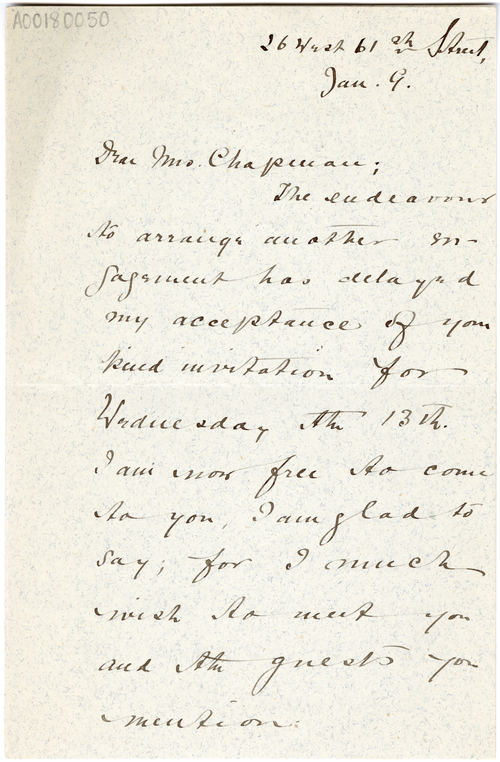 A00180050
26 West 61st Street,
Jan. 9.
Dear Mrs. Chapman;
The endeavour
to arrange another en-
gagement has delayed
my acceptance of your
kind invitation for
Wednesday the 13th.
I am now free to come
to you, I am glad to
say; for I much
wish to meet you
and the guests you
mention.